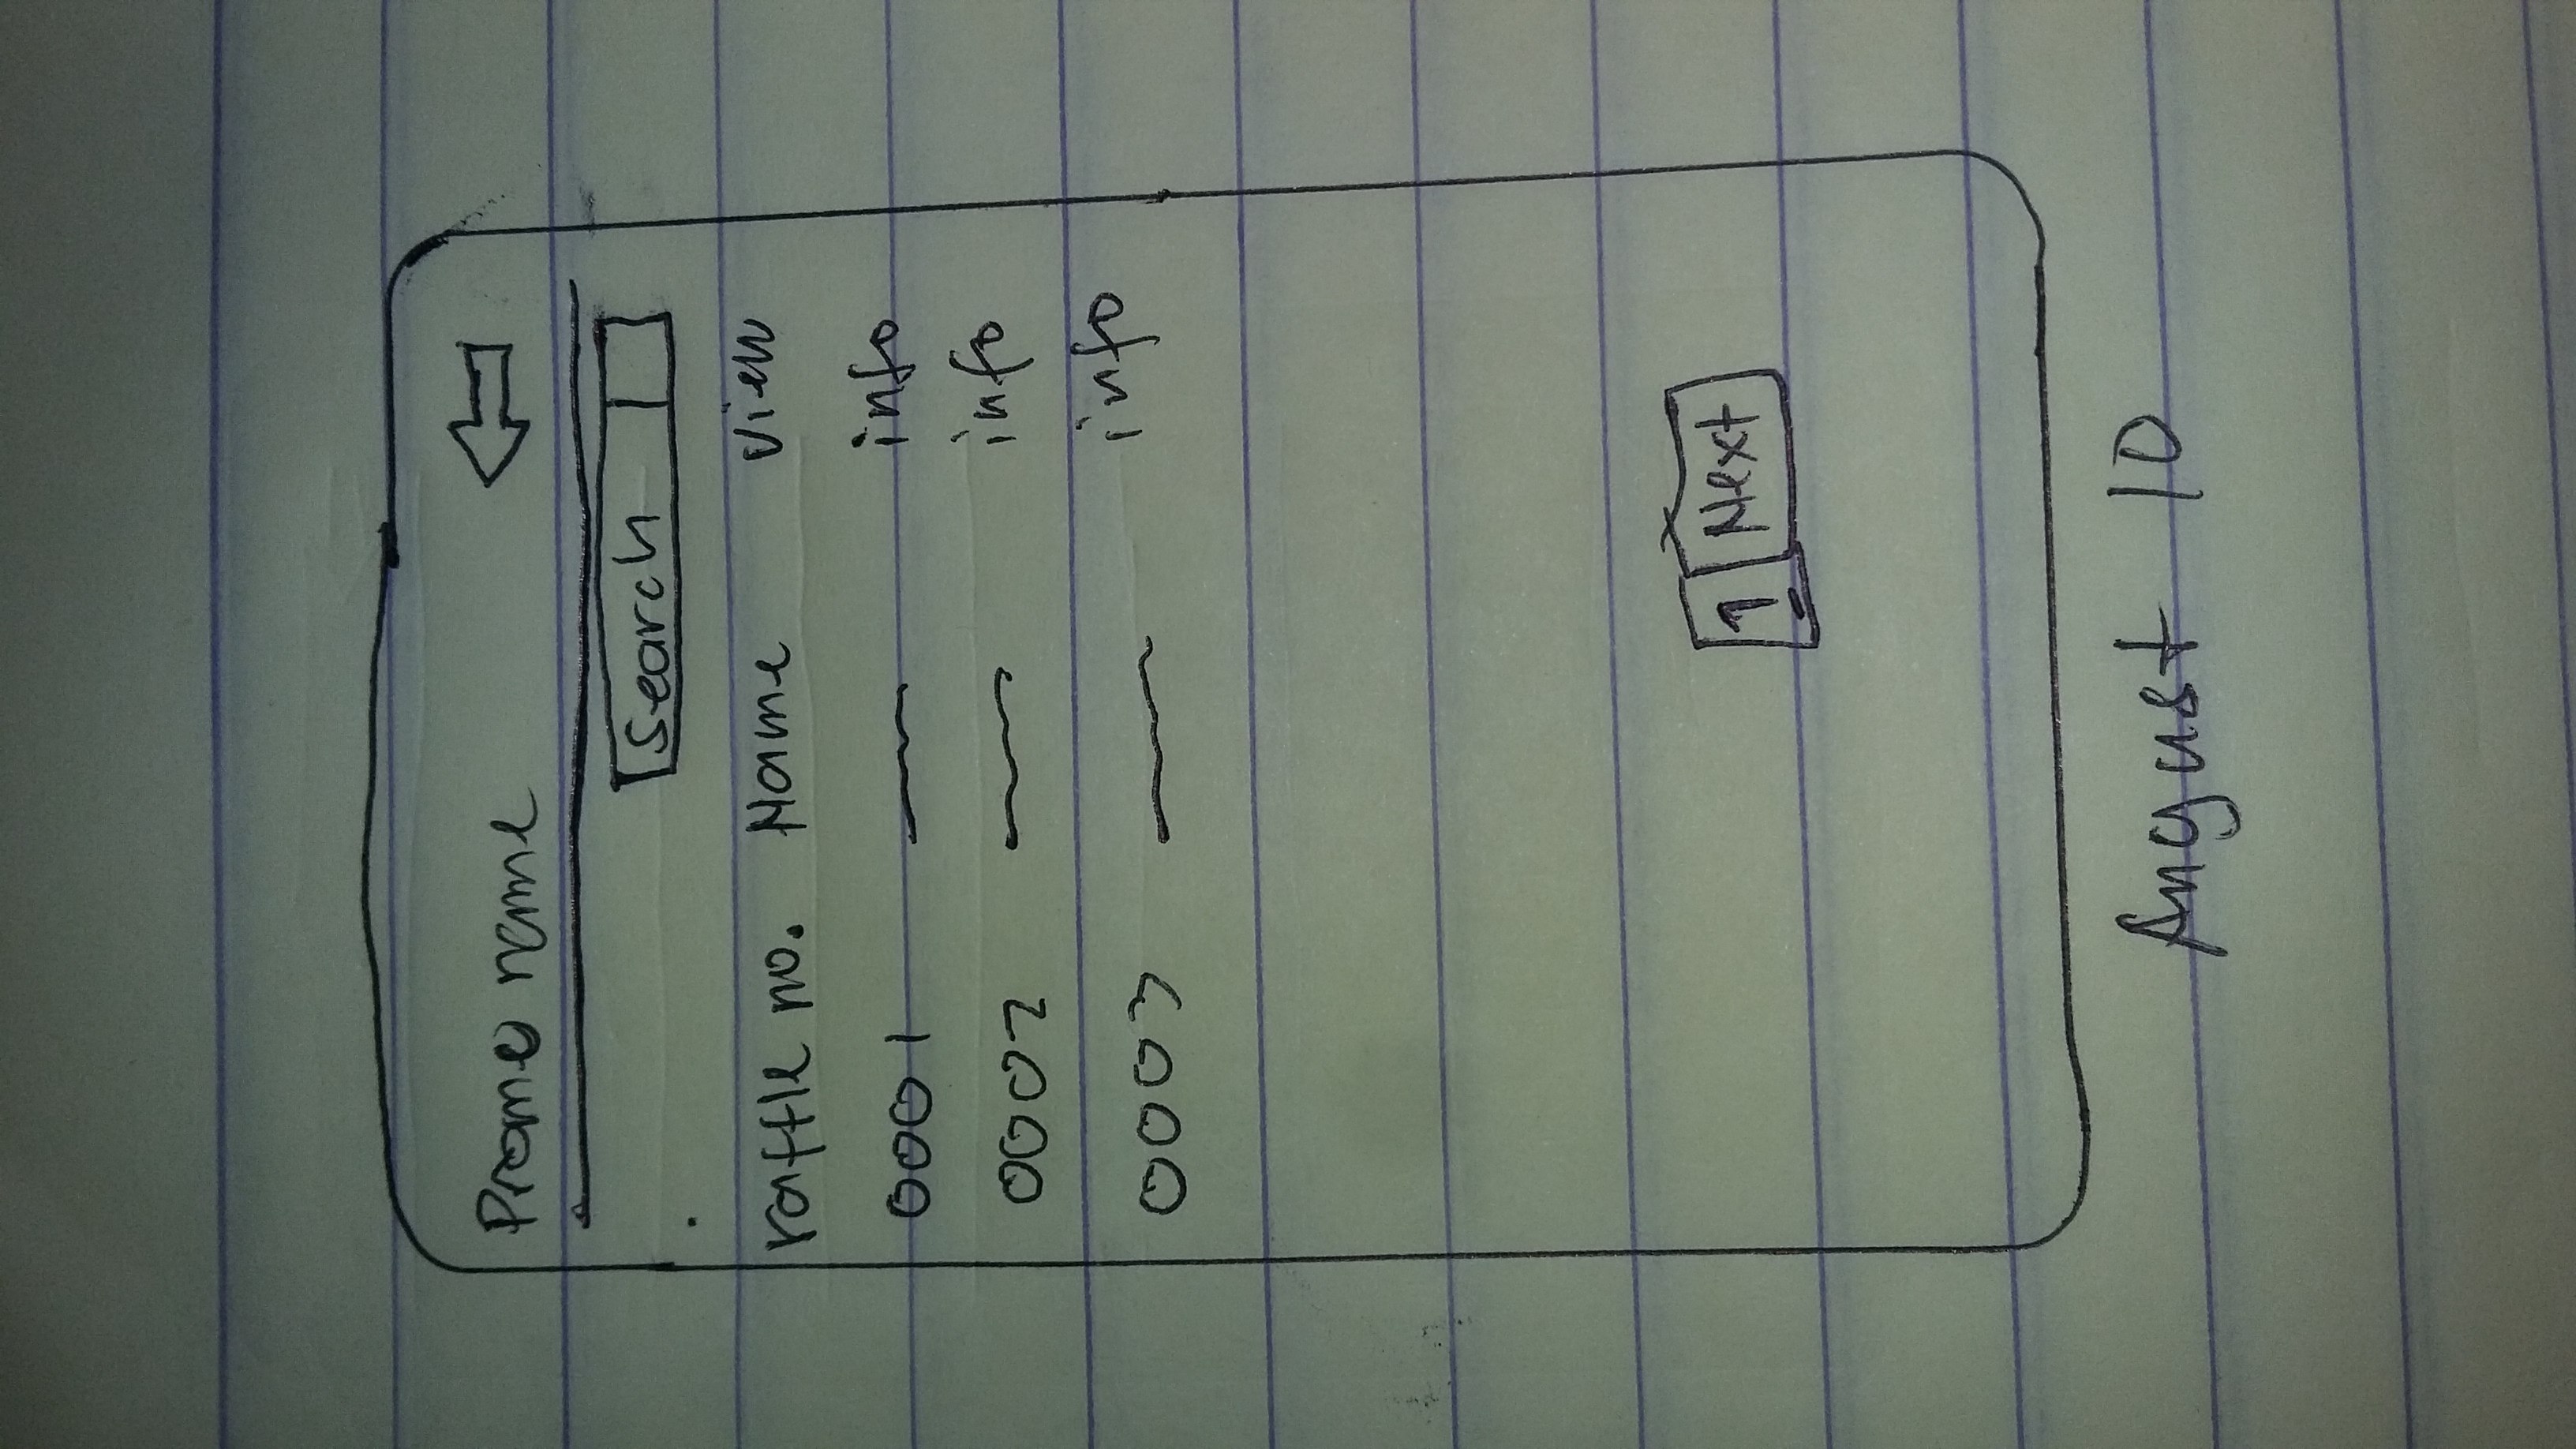 Promo name
search
raffle no. Name view
0001 info
0002 info
0003 info
1 Next
August 10